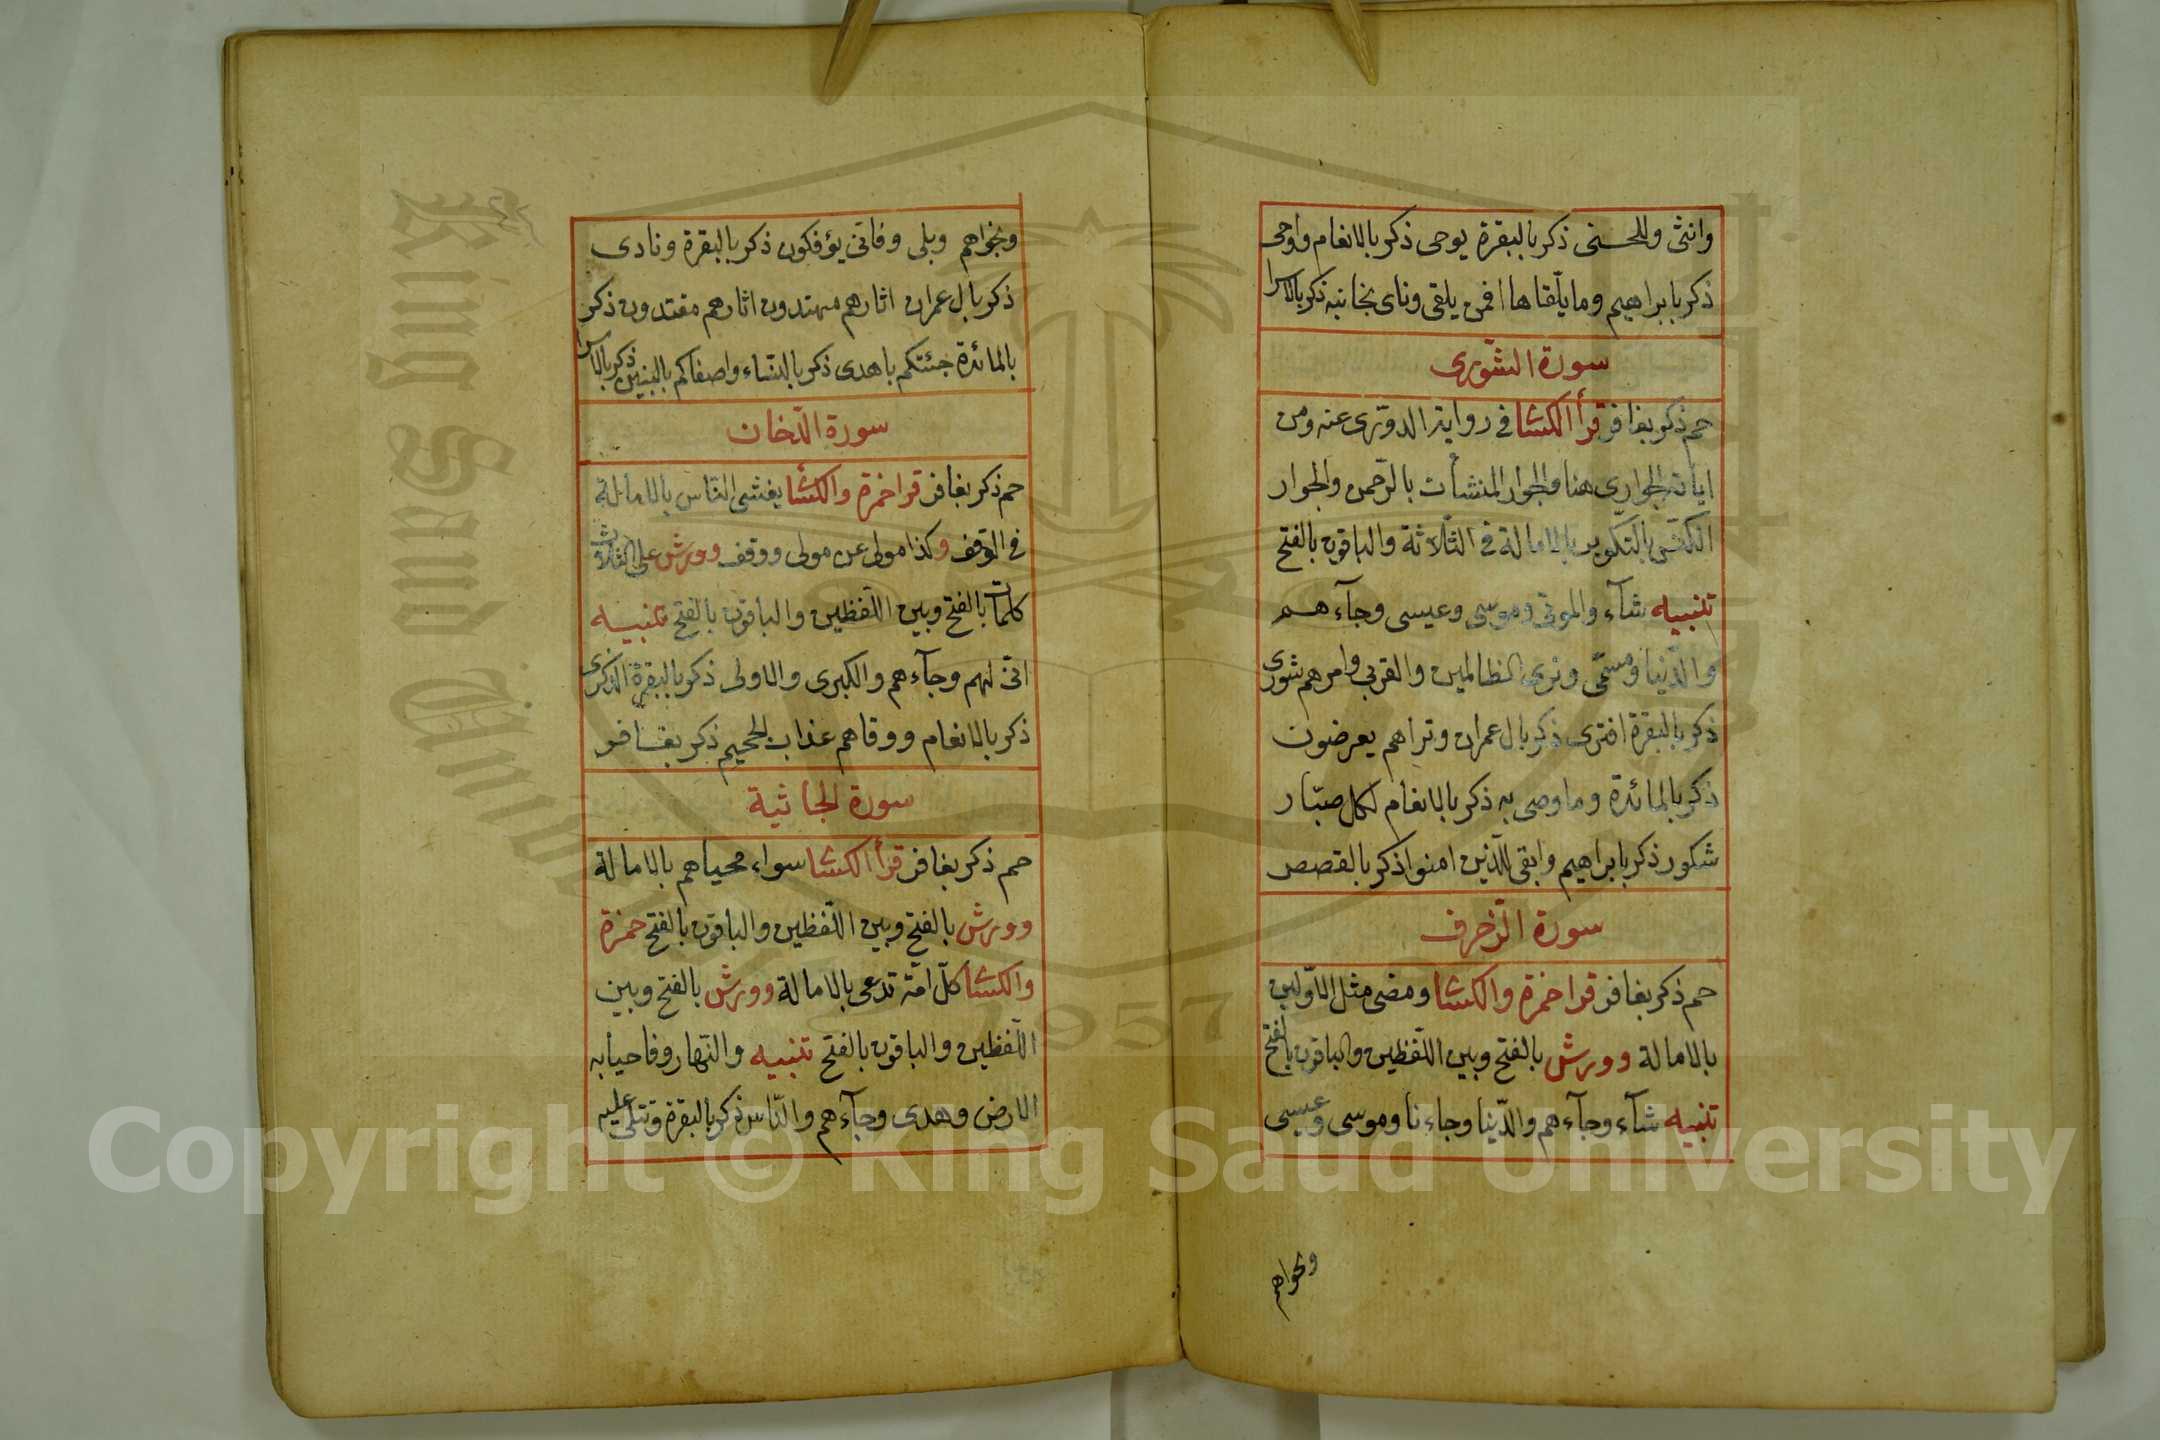 وانثى وللحسنى ذكر بالبقرة يوحى ذكر بالانعام واوحى
ذكر بابراهيم وما يلقاها افمن يلقى وناى بجانبه ذكر بالاسرا
سورة الشورى
حم ذكر بغافر قرأ الكسائى فى رواية الدورى عنه ومن
اياته الجوارى هنا والجوار المنشأت بالرحمن والجوار
الكنس بالتكوير بالامالة فى الثلاثة والباقون بالفتح
تنبيه شآء والموتى وموسى وعيسى وجآءهم
والدنيا ومسمى وترى الظالمين والقربى وامرهم شورى
ذكر بالبقرة افترى ذكر بال عمران وتراهم يعرضون
ذكر بالمائدة وما وصى به ذكر بالانعام لكل صبار
شكور ذكر بابراهيم وابقى للذين امنوا ذكر بالقصص
سورة الزخرف
حم ذكر بغافر قرا حمزة والكسائى ومضى مثل الاولين
بالامالة وورش بالفتح وبين اللفظين والباقون بالفتح
تنبيه شآء وجآءهم والدنيا وجاءنا وموسى وعيسى
ونجواهم
ونجواهم وبلى وفانى يؤفكون ذكر بالبقرة ونادى
ذكر بال عمران اثارهم مهتدون اثارهم مقتدون ذكر
بالمائدة جئتكم باهدى ذكر بالنساء واصفاكم بالبنين ذكر بالاسرا
سورة الدخان
حم ذكر بغافر قرا حمزة والكسائى يغشى الناس بالامالة
فى الوقف وكذا مولى عن مولى ووقف وورش على الثلاث
كلمات بالفتح وبين اللفظين والباقون بالفتح تنبيه
انى لهم وجآءهم والكبرى والاولى ذكر بالبقرة الذكرى
ذكر بالانعام ووقاهم عذاب الجحيم ذكر بغافر
سورة الجاثية
حم ذكر بغافر قرأ الكسائى سواء محياهم بالامالة
وورش بالفتح وبين اللفظين والباقون بالفتح حمزة
والكسائى كل امة تدعى بالامالة وورش بالفتح وبين
اللفظين والباقون بالفتح تنبيه والنهار وفاحيا به
الارض وهدى وجآءهم والناس ذكر بالبقرة وتتلى عليه
Copyright © King Saud University
King Saud University
1957